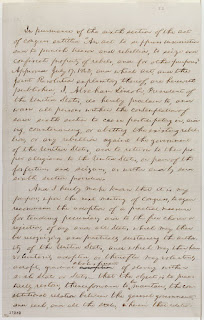 In pursuance of the sixth section of the act of
congress entitled "An act to suppress insurrection
and to punish treason and rebellion, to seize and
confiscate property of rebels, and for other purposes"
Approved July 17, 1862, and which act, and the
Joint Resolution explanatory thereof, are herewith
published, I, Abraham Lincoln, President of
the United States, do hereby proclaim to, and
warn all persons within the contemplation of
said sixth section to cease participating in, aid-
ing, countenancing, or abetting the existing rebel-
lion, or any rebellion against the government
of the United States, and to return to their pro-
per allegiance to the United States, on pain of the
forfeitures and seizures, as within and by said
sixth section provided.
And I hereby make known that it is my
purpose, upon the next meeting of Congress, to again
recommend the adoption of a practical measure
for tendering pecuniary aid to the free choice or
rejection, of any and all States which may then
be recognizing and practically sustaining the author-
ity of the United States, and which may then have
voluntarily adopted, or thereafter may voluntarily
adopt, gradual abolishment of slavery within
such State or States that the object is to prac-
tically restore, thenceforward to be maintained, the con-
stitutional relation between the general government,
and each, and all the states,